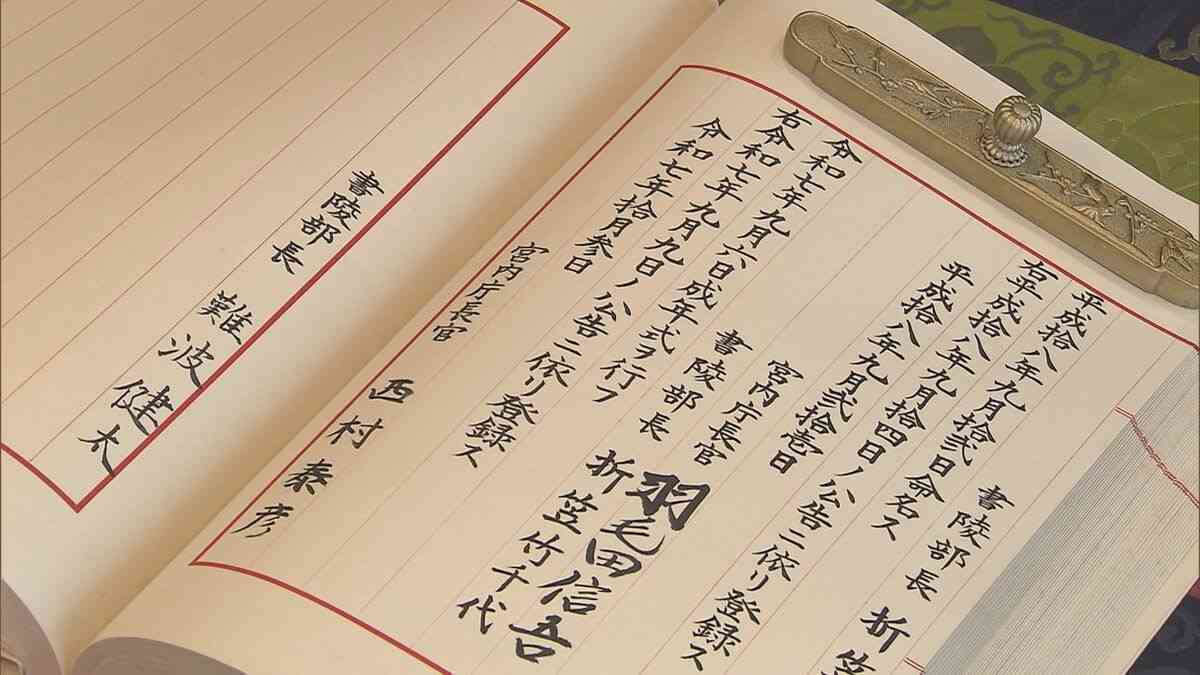 書陵部長 折笠
平成拾八年九月拾弐日命名ス
右平成拾八年九月拾四日ノ公告ニ依リ登録ス
平成拾八年九月弐拾壱日
宮内庁長官 羽毛田信吾
書陵部長 折笠竹千代
令和七年九月六日成年式ヲ行フ
右令和七年九月九日ノ公告ニ依リ登録ス
令和七年拾月参日
宮内庁長官 西村泰彦
書陵部長 難波健太